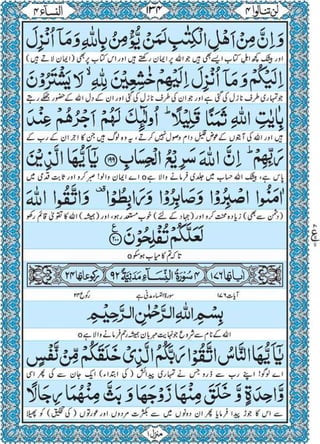 النسآء۴ ۱۳۴ لن تنالوا۴
وَاِنَّ مِنْ اَهْلِ الْكِتٰبِ لَمَنْ يُّؤْمِنُ بِاللّٰهِ وَمَاۤ اُنْزِلَ
اور بیشک کچھ اہل کتاب ایسے بھی ہیں جو اللہ پر ایمان رکھتے ہیں اور اس کتاب پر بھی (ایمان لاتے ہیں)
اِلَيْكُمْ وَ مَاۤ اُنْزِلَ اِلَيْهِمْ خٰشِعِيْنَ لِلّٰهِ ۙ لَا يَشْتَرُوْنَ
جو تمہاری طرف نازل کی گئی ہے اور جو ان کی طرف نازل کی گئی تھی اور ان کے دل اللہ کے حضور جھکے رہتے
بِاٰيٰتِ اللّٰهِ ثَمَنًا قَلِيْلًا ؕ اُولٰٓئِكَ لَهُمْ اَجْرُهُمْ عِنْدَ
ہیں اور اللہ کی آیتوں کے عوض قلیل دام وصول نہیں کرتے، یہ وہ لوگ ہیں جن کا اجر ان کے رب کے
رَبِّهِمْ ؕ اِنَّ اللّٰهَ سَرِيْعُ الْحِسَابِ ﴿۱۹۹﴾ يٰۤاَيُّهَا الَّذِيْنَ
پاس ہے، بیشک اللہ حساب میں جلدی فرمانے والا ہے o اے ایمان والو! صبر کرو اور ثابت قدمی میں
اٰمَنُوا اصْبِرُوْا وَصَابِرُوْا وَرَابِطُوْا ۫ وَاتَّقُوا اللّٰهَ
(دشمن سے بھی) زیادہ محنت کرو اور (جہاد کے لئے) خوب مستعد رہو، اور (ہمیشہ) اللہ کا تقویٰ قائم رکھو
لَعَلَّكُمْ تُفْلِحُوْنَ ﴿۲۰۰﴾
تاکہ تم کامیاب ہو سکو o
اٰیاتها ۱۷۶ ۴ سُوْرَةُ النِّسَآءِ مَدَنِيَّةٌ ۹۲ رکوعاتها ۲۴
آیات ۱۷۶ سورۃ النساء مدنی ہے رکوع ۲۴
بِسْمِ اللّٰهِ الرَّحْمٰنِ الرَّحِيْمِ
اللہ کے نام سے شروع جو نہایت مہربان ہمیشہ رحم فرمانے والا ہے o
يٰۤاَيُّهَا النَّاسُ اتَّقُوْا رَبَّكُمُ الَّذِيْ خَلَقَكُمْ مِّنْ نَّفْسٍ
اے لوگو! اپنے رب سے ڈرو جس نے تمہاری پیدائش (کی ابتداء) ایک جان سے کی پھر اسی
وَّاحِدَةٍ وَّ خَلَقَ مِنْهَا زَوْجَهَا وَ بَثَّ مِنْهُمَا رِجَالًا
سے اس کا جوڑ پیدا فرمایا پھر ان دونوں میں سے بکثرت مردوں اور عورتوں (کی تخلیق) کو پھیلا
منزل۱